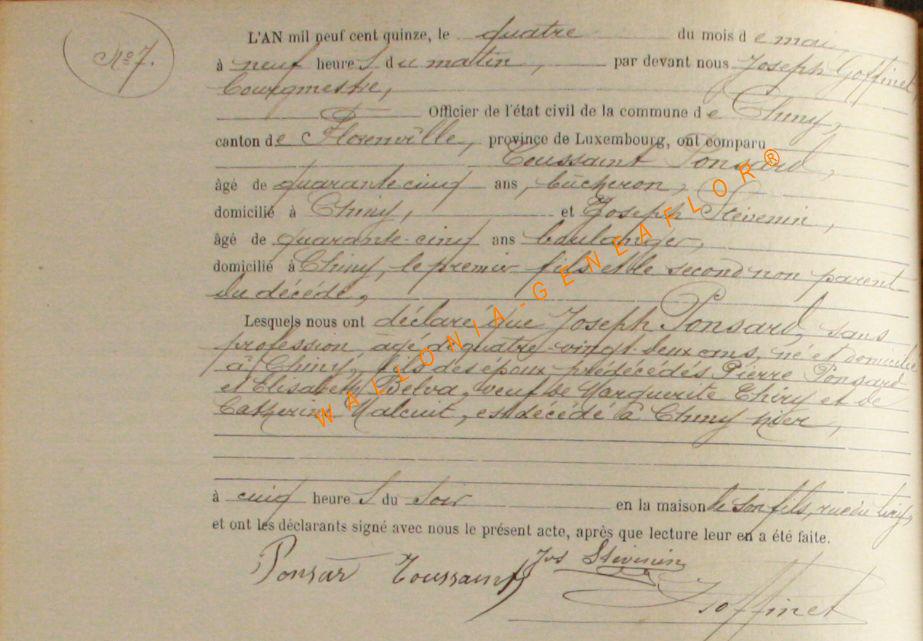 N° 7.
L'AN mil neuf cent quinze, le quatre du mois de mai,
à neuf heures du matin, par devant nous Joseph Goffinet
bourgmestre,
Officier de l'état civil de la commune de Chiny,
canton de Florenville, province de Luxembourg, ont comparu
Toussaint Ponsard,
âgé de quarante cinq ans, bûcheron,
domicilié à Chiny, et Joseph Stévenin,
âgé de quarante-cinq ans boulanger,
domicilié à Chiny, le premier fils et le second non parent
du décédé,
Lesquels nous ont déclaré que Joseph Ponsard, sans
profession âgé de quatre vingt deux ans, né et domicilié
à Chiny, fils des époux prédécédés Pierre Ponsard
et Elisabeth Delva, veuf de Marguerite Thiry et de
Catherine Malcuit, est décédé à Chiny hier,
à cinq heures du soir en la maison de son fils, rue du
et ont les déclarants signé avec nous le présent acte, après que lecture leur en a été faite.
Ponsar Toussaint Jos Stévenin
J Goffinet
WALLONIA-GENEAFLOR®